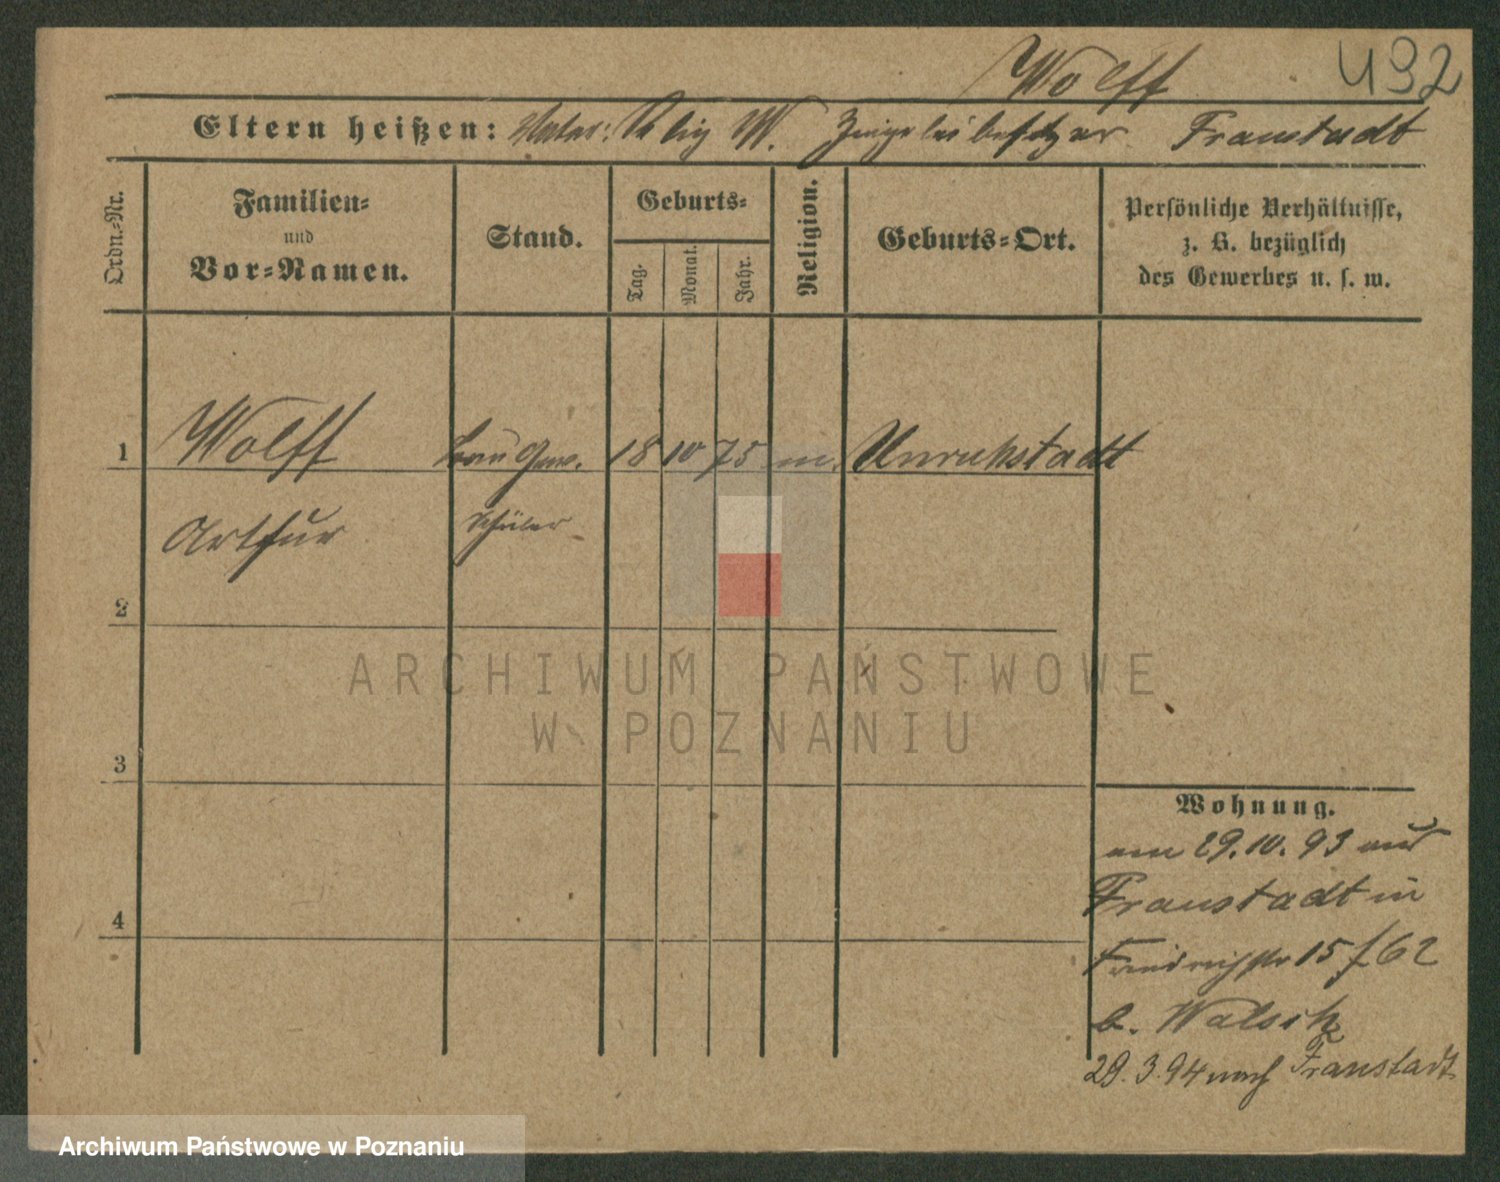 Wolff 492
Eltern heißen: Vater: W. Ziegeleibesitzer Fraustadt
Ordn.-Nr.
Familien-
und
Vor-Namen.
Stand.
Geburts-
Tag.
Monat.
Jahr.
Religion.
Geburts-Ort.
Persönliche Verhältnisse,
z. B. bezüglich
des Gewerbes u. s. w.
1 Wolff Bau Gew. 18 10 75 m. Unruhstadt
Arthur Schüler
2
3
4
Wohnung.
am 29.10.93 aus
Fraustadt in
Friedrichstr 15 f 62
b.
29.3.94 nach Fraustadt
ARCHIWUM PAŃSTWOWE
W POZNANIU
Archiwum Państwowe w Poznaniu